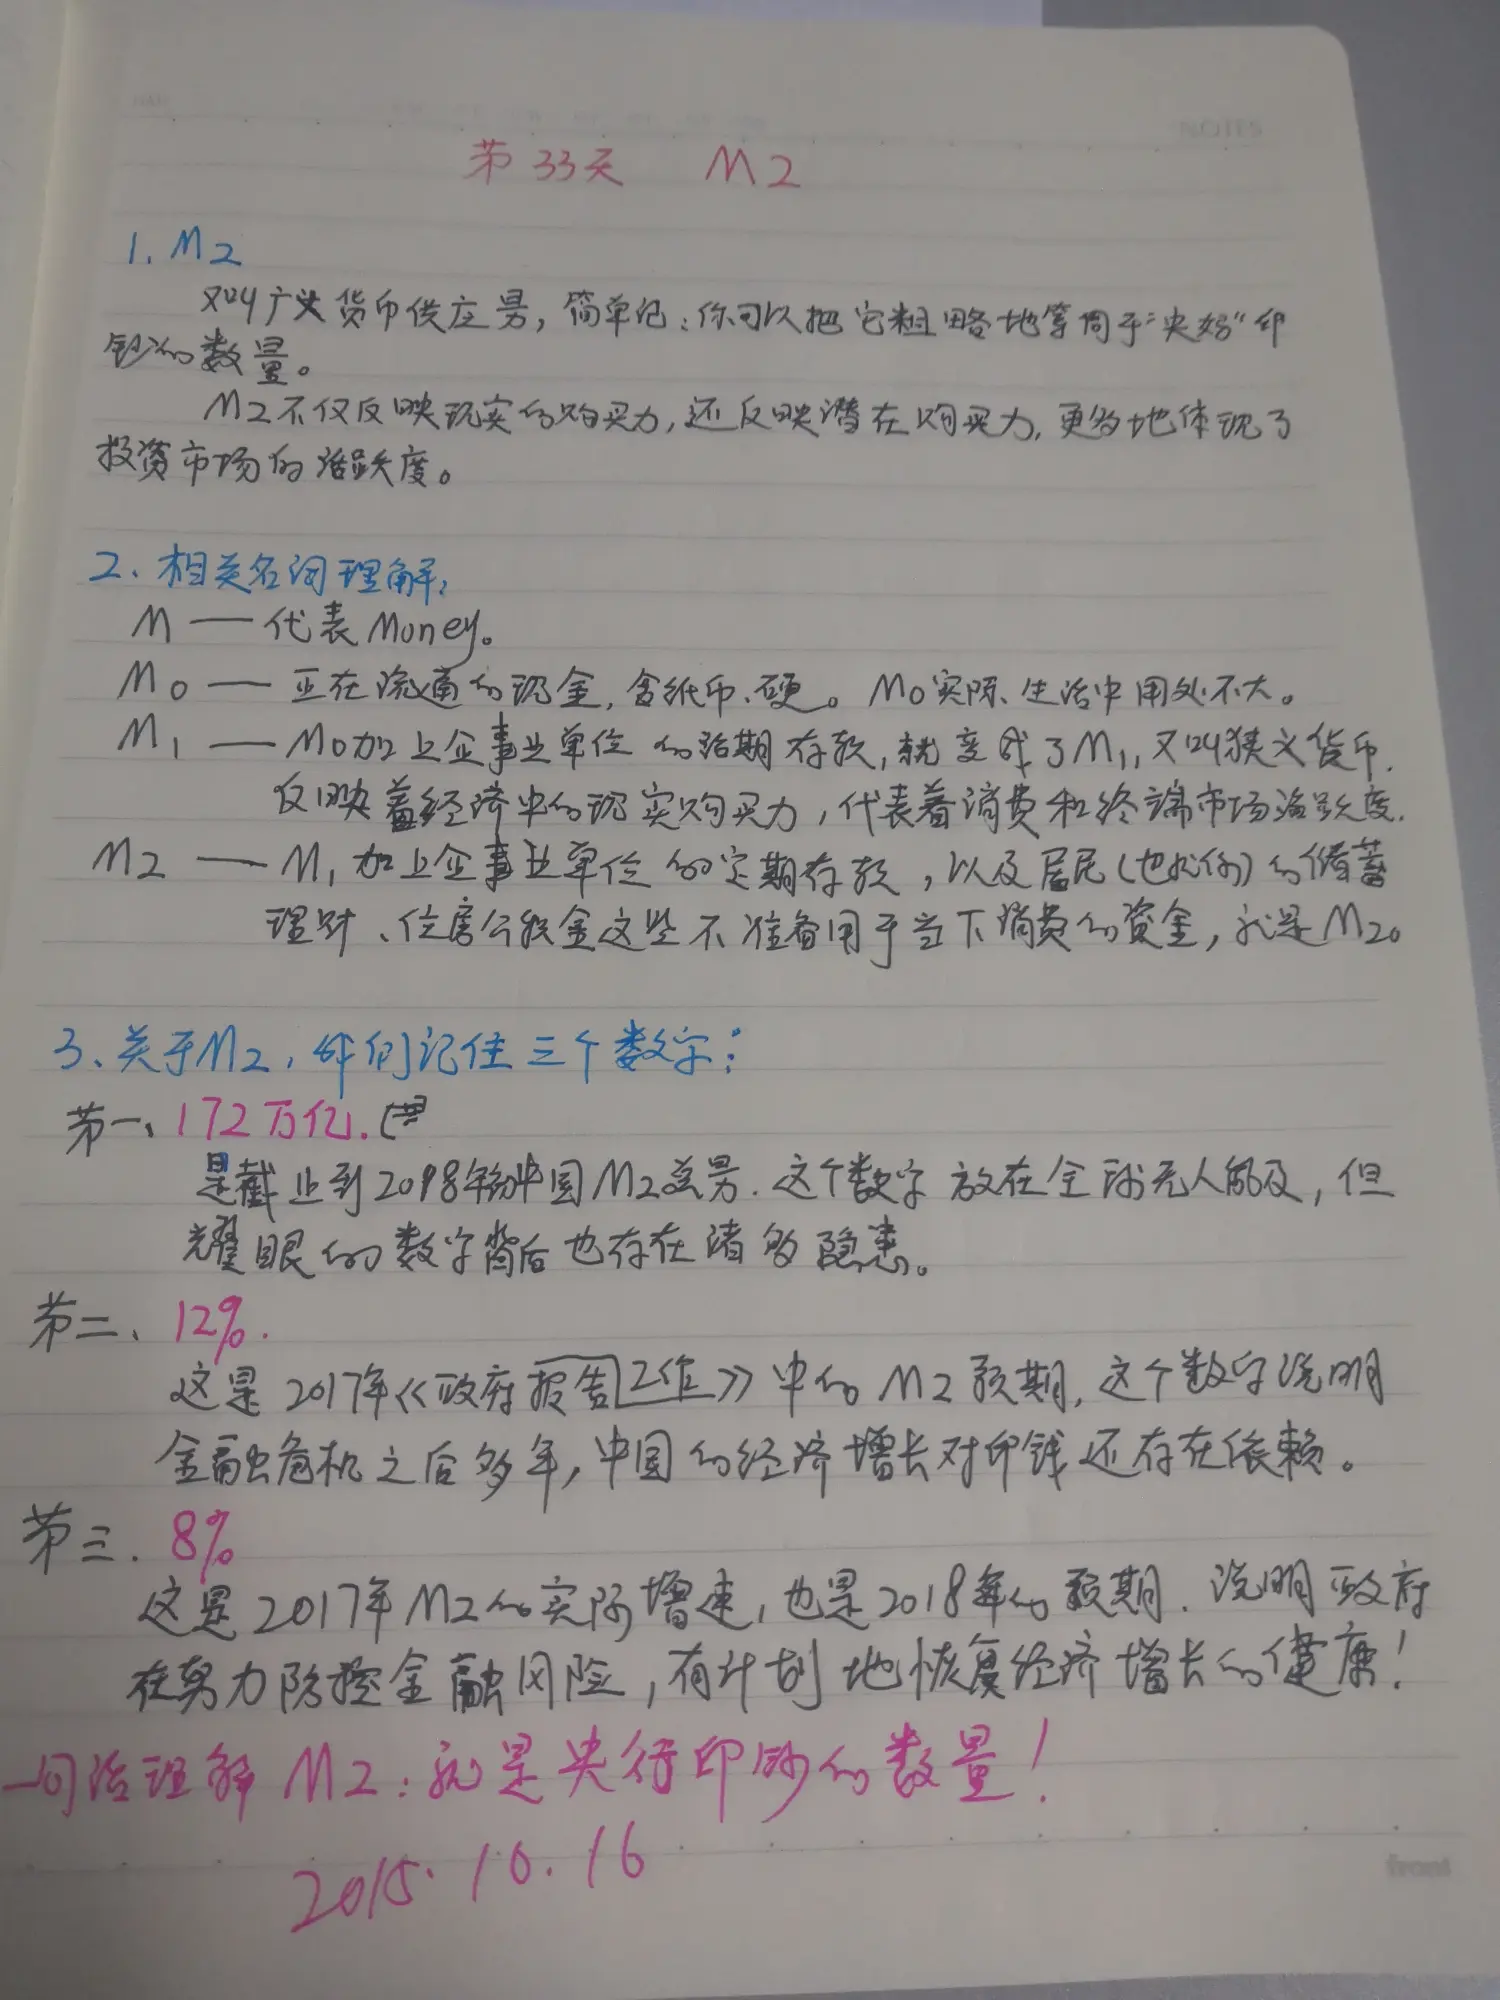 NOTES
第33天 M2
1. M2
又叫广义货币供应量,简单记:你可以把它粗略地等同于"央妈"印
钞的数量。
M2不仅反映现实的购买力,还反映潜在购买力,更多地体现了
投资市场的活跃度。
2、相关名词理解:
M——代表Money。
M0——正在流通的现金,含纸币、硬。M0实际、生活中用处不大。
M1——M0加上企事业单位的活期存款,就变成了M1,又叫狭义货币.
反映着经济中的现实购买力,代表着消费和终端市场活跃度.
M2——M1加上企事业单位的定期存款,以及居民(也就你)的储蓄
理财、住房公积金这些不准备用于当下消费的资金,就是M2。
3、关于M2,咱们记住三个数字:
第一、172万亿.
是截止到2018年初中国M2总量.这个数字放在全球无人能及,但
耀眼的数字背后也存在诸多隐患。
第二、12%.
这是2017年《政府报告工作》中的M2预期,这个数字说明
金融危机之后多年,中国的经济增长对印钱还存在依赖。
第三.8%
这是2017年M2的实际增速,也是2018年的预期.说明政府
在努力防控金融风险,有计划地恢复经济增长的健康!
一句话理解M2:就是央行印钞的数量!
2015.10.16
front